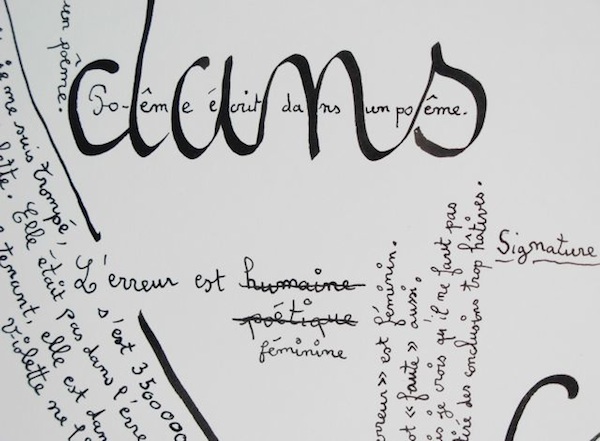 poême.
dans
Po-ême écrit dans un poême.
je me suis trompé,
Elle était pas dans l'erre
s'est 3500000
tenant, elle est dan
violette ne l'
L'erreur est humaine
poétique
féminine
erreur » est féminin.
ot « faute » aussi.
is je crois qu'il me faut pas
tiré des conclusions trop hâtives.
Signature